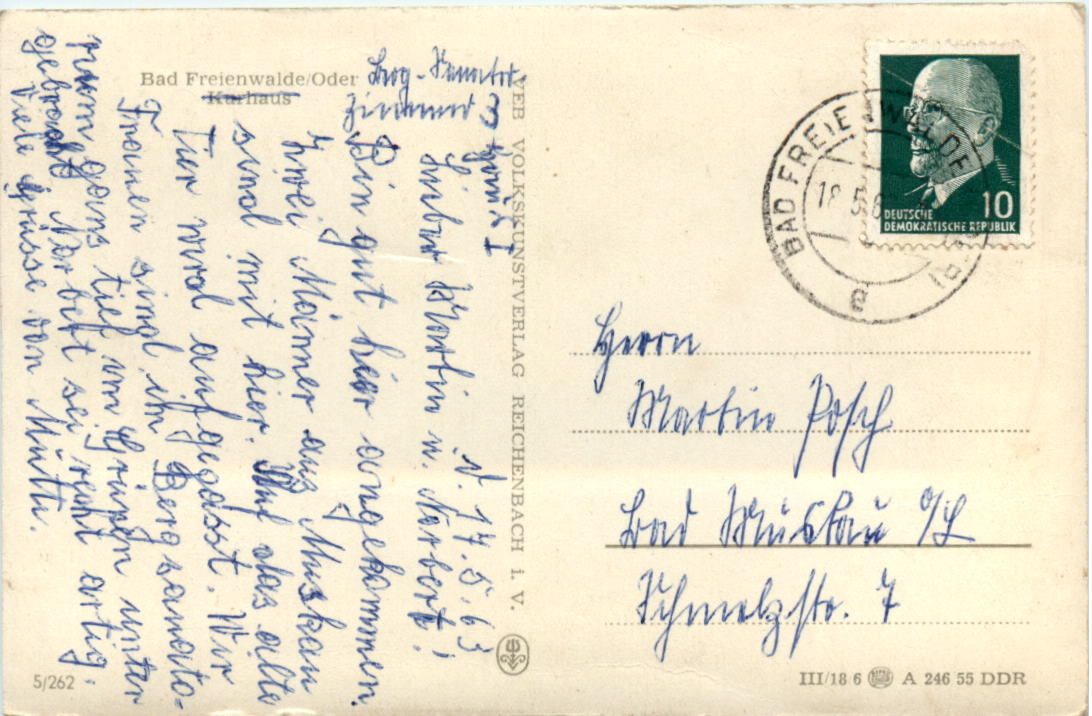 Bad Freienwalde/Oder
Kurhaus
Berg-Sanator.
Zimmer 3
Haus I
d. 17.5.63
Lieber Martin u. Norbert!
Bin gut hier angekommen.
Zwei Männer aus Muskau
sind mit hier. Auf das alte
Tier wird aufgepasst. Wir
Frauen sind im Bergsanato-
rium ganz tief im Grünen unter
gebracht. Norbert sei recht artig.
Viele Grüsse von Mutti.
5/262
VEB VOLKSKUNSTVERLAG REICHENBACH i. V.
BAD FREIENWALDE
18.5.6
a
10
DEUTSCHE
DEMOKRATISCHE REPUBLIK
Herrn
Martin Posch
Bad Muskau O/L
Schmelzstr. 7
III/18 6 A 246 55 DDR